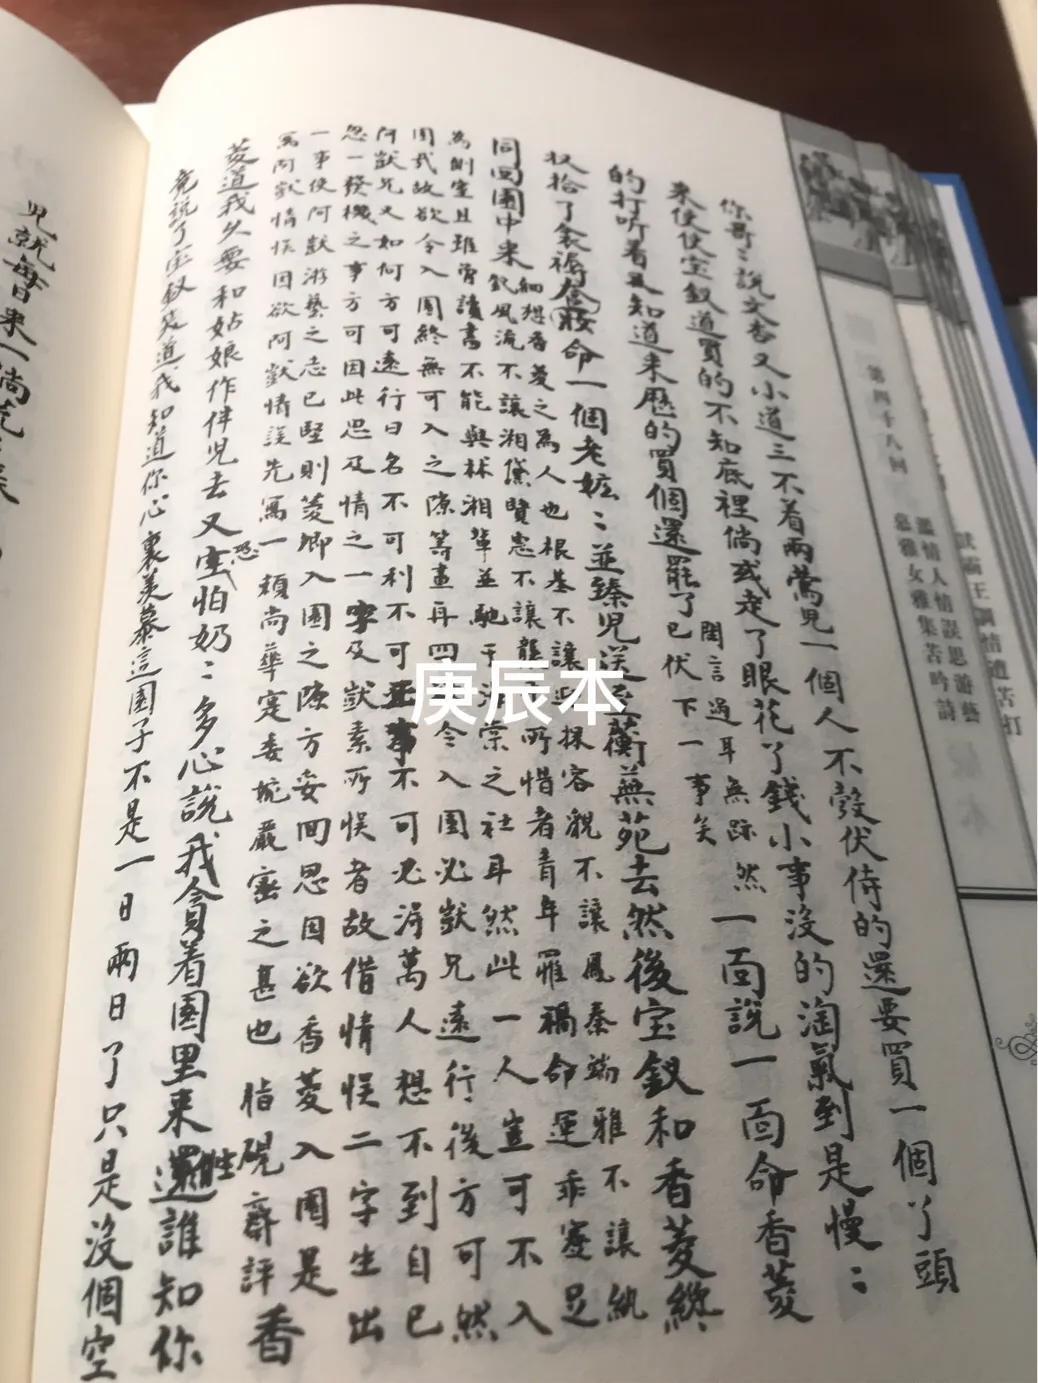 獃霸王調情遭苦打
濫情人情誤思游藝
慕雅女雅集苦吟詩
第四十八回
你哥:說文杏又小道三不着兩鶯児一個人不彀伏侍的還要買一個丫頭
来使使宝釵道買的不知底裡倘或走了眼花了錢小事没的淘氣到是慢:
的打听着有知道来歷的買個還罷了閨言過耳無跡然已伏下一事矣一面說一面命香菱
收拾了衾褥奩妝命一個老嫲:並臻児送至蘅蕪苑去然後宝釵和香菱終
同回園中来
細想香菱之為人也根基不讓迎探容貌不讓鳳秦端雅不讓紈
釵風流不讓湘黛賢惠不讓襲 所惜者青年罹禍命運乖蹇足
為側室且雖曾讀書不能與林湘輩並馳于海棠之社耳然此一人豈可不入
園哉故欲令入園終無可入之隙筹畫再四 令入園必獃兄遠行後方可然
阿獃兄又如何方可遠行曰名不可利不可正事不可必得萬人想不到自己
忽一發機之事方可因此思及情之一字及獃素所悮者故借情悮二字生出
一事使阿獃游藝之志已堅則菱卿入園之隙方妥回思因欲香菱入園是
寫阿獃情悮因欲阿獃情誤先寫一頼尚華寔委婉嚴密之甚也 脂硯齋評 香
菱道我久要和姑娘作伴児去又恐怕奶:多心說我貪着園里来頑誰知你
竟說了宝釵笑道我知道你心裏羡慕這園子不是一日兩日了只是没個空
児就每日来一倘慌:張
庚辰本